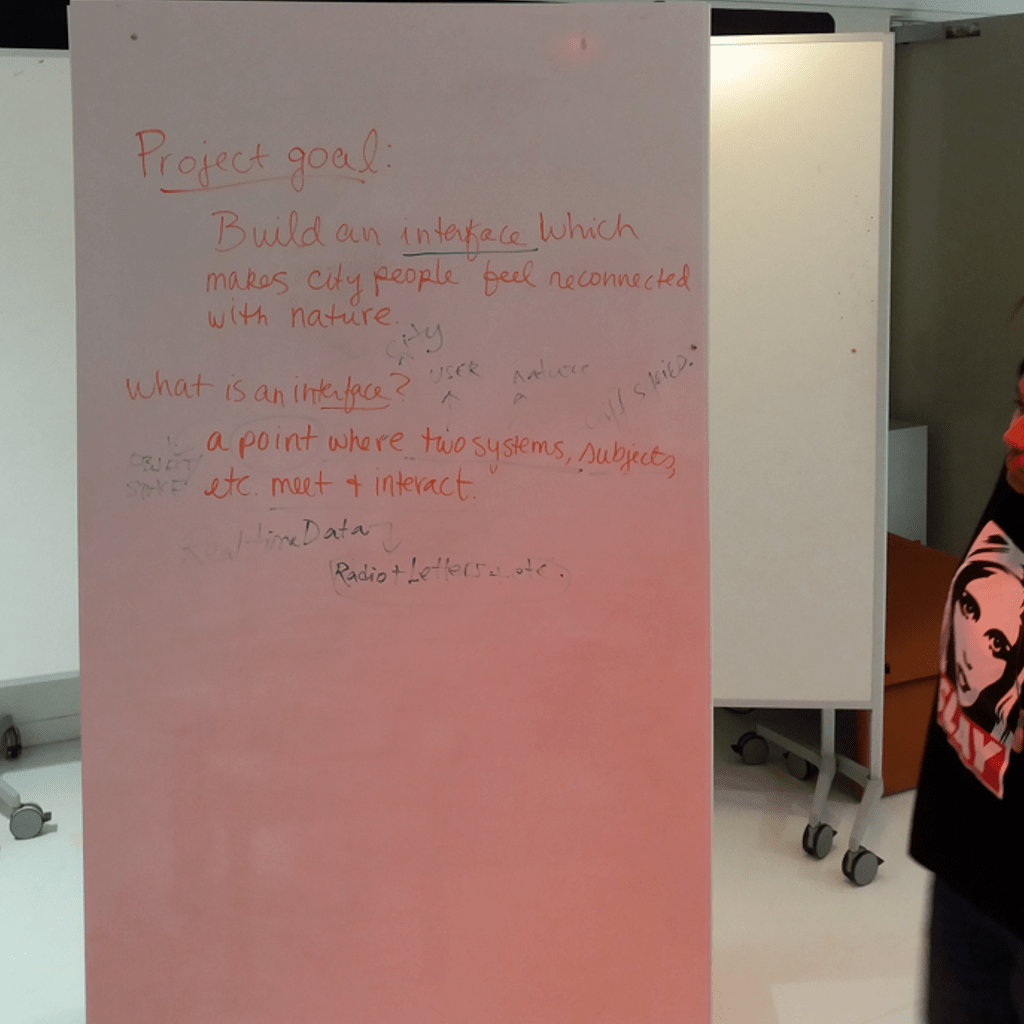 Project goal:
Build an interface which
makes city people feel reconnected
with nature.
City
USER nature
what is an interface?
a point where two systems, subjects,
OBJECT
SPACE
etc. meet + interact.
Real-time Data
Radio + Letters... etc.
SLAY